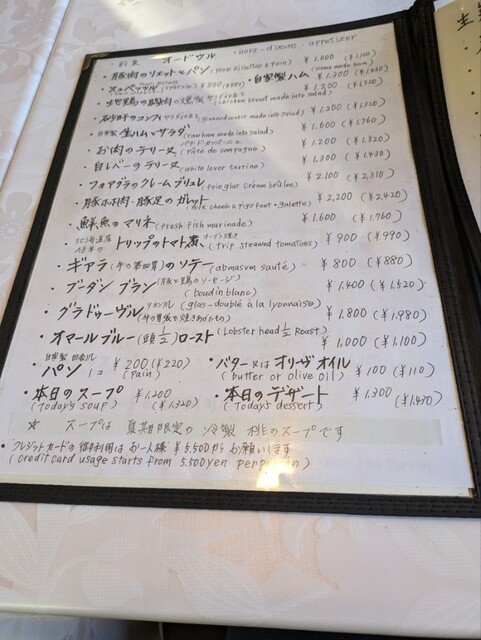 前菜 オードヴル ・hors-d'œuvre・appetizer
・豚肉のリエットとパン (Pork Rillettes & Pain) ¥1,000 (¥1,100)
・自家製ハム (Home made ham) ¥1,300 (¥1,430)
の燻製 サラダ仕立て (chicken breast made into salad) ¥1,200 (¥1,320)
・砂肝のコンフィ サラダ仕立て (gizzard confit made into salad) ¥1,200 (¥1,320)
・自家製 生ハムとサラダ (raw ham made into salad) ¥1,600 (¥1,760)
・お肉のテリーヌ パテ・ド・カンパーニュ (Pâté de campagne) ¥1,200 (¥1,320)
・白レバーのテリーヌ (white lever terrine) ¥1,300 (¥1,430)
・フォアグラのクレームブリュレ (foie glar Crèam brûlée) ¥2,100 (¥2,310)
・豚ホホ肉・豚足のガレット (Pork cheek & pigs feet・galette) ¥2,200 (¥2,420)
・鮮魚のマリネ (Fresh fish marinade) ¥1,600 (¥1,760)
トリップのトマト煮 オーブン焼き (trip steamed tomatoes) ¥900 (¥990)
・ギアラ (牛の第四胃) のソテー (abmasum sauté) ¥800 (¥880)
・ブーダン ブラン (豚と鶏のソーセージ) (boudin blanc) ¥1,400 (¥1,520)
・グラドゥーヴル リヨン風 (glas-doublé à la lyonnaise) ¥1,800 (¥1,980)
・オマールブルー (頭½) ロースト (Lobster head ½ Roast) ¥1,000 (¥1,100)
・パン 1コ (Pain) ¥200 (¥220)
・バター又はオリーヴオイル (butter or olive oil) ¥100 (¥110)
・本日のスープ (Today's soup) ¥1,200 (¥1,320)
・本日のデザート (Today's dessert) ¥1,300 (¥1,430)
☆ スープは 夏期限定の 冷製 桃のスープです
・クレジットカードの御利用は お一人様 ¥5,500から お願いします
(credit card usage starts from 5.500yen per person)